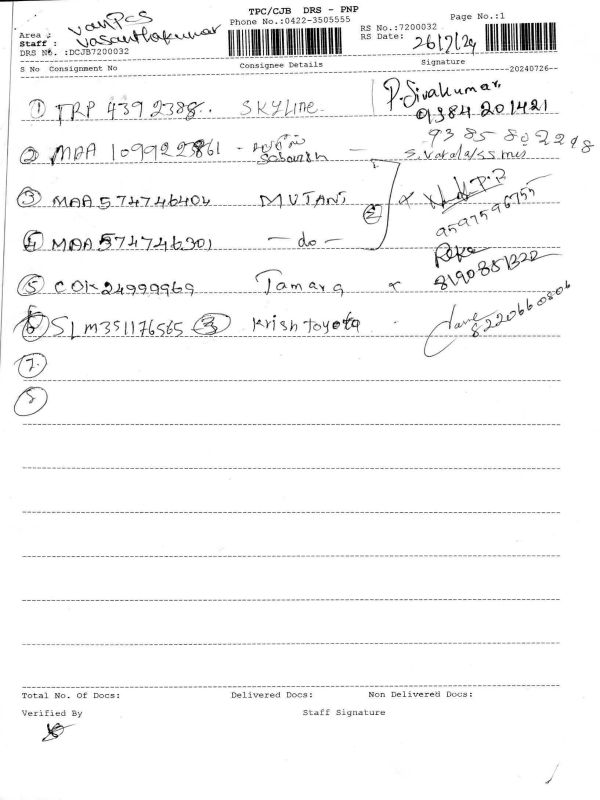 TPC/CJB DRS - PNP
Phone No.:0422-3505555
Page No.:1
Area : van PCS
Staff : Vasanthakumar
DRS No. :DCJB7200032
RS No.:7200032
RS Date: 26/7/24
S No Consignment No Consignee Details Signature
--20240726--
1 TRP 4392388. SKYLINE. P. Sivakumar
01384 201421
2 MAA 109922
3 MAA 574746404 MUTANI 2
9597596755
4 MAA 574746301 - do -
5 COK24999969 Tamara 8190851322
6 SLM351176565 3 Krish toyota 8220660806
7.
8
Total No. Of Docs: Delivered Docs: Non Delivered Docs:
Verified By Staff Signature